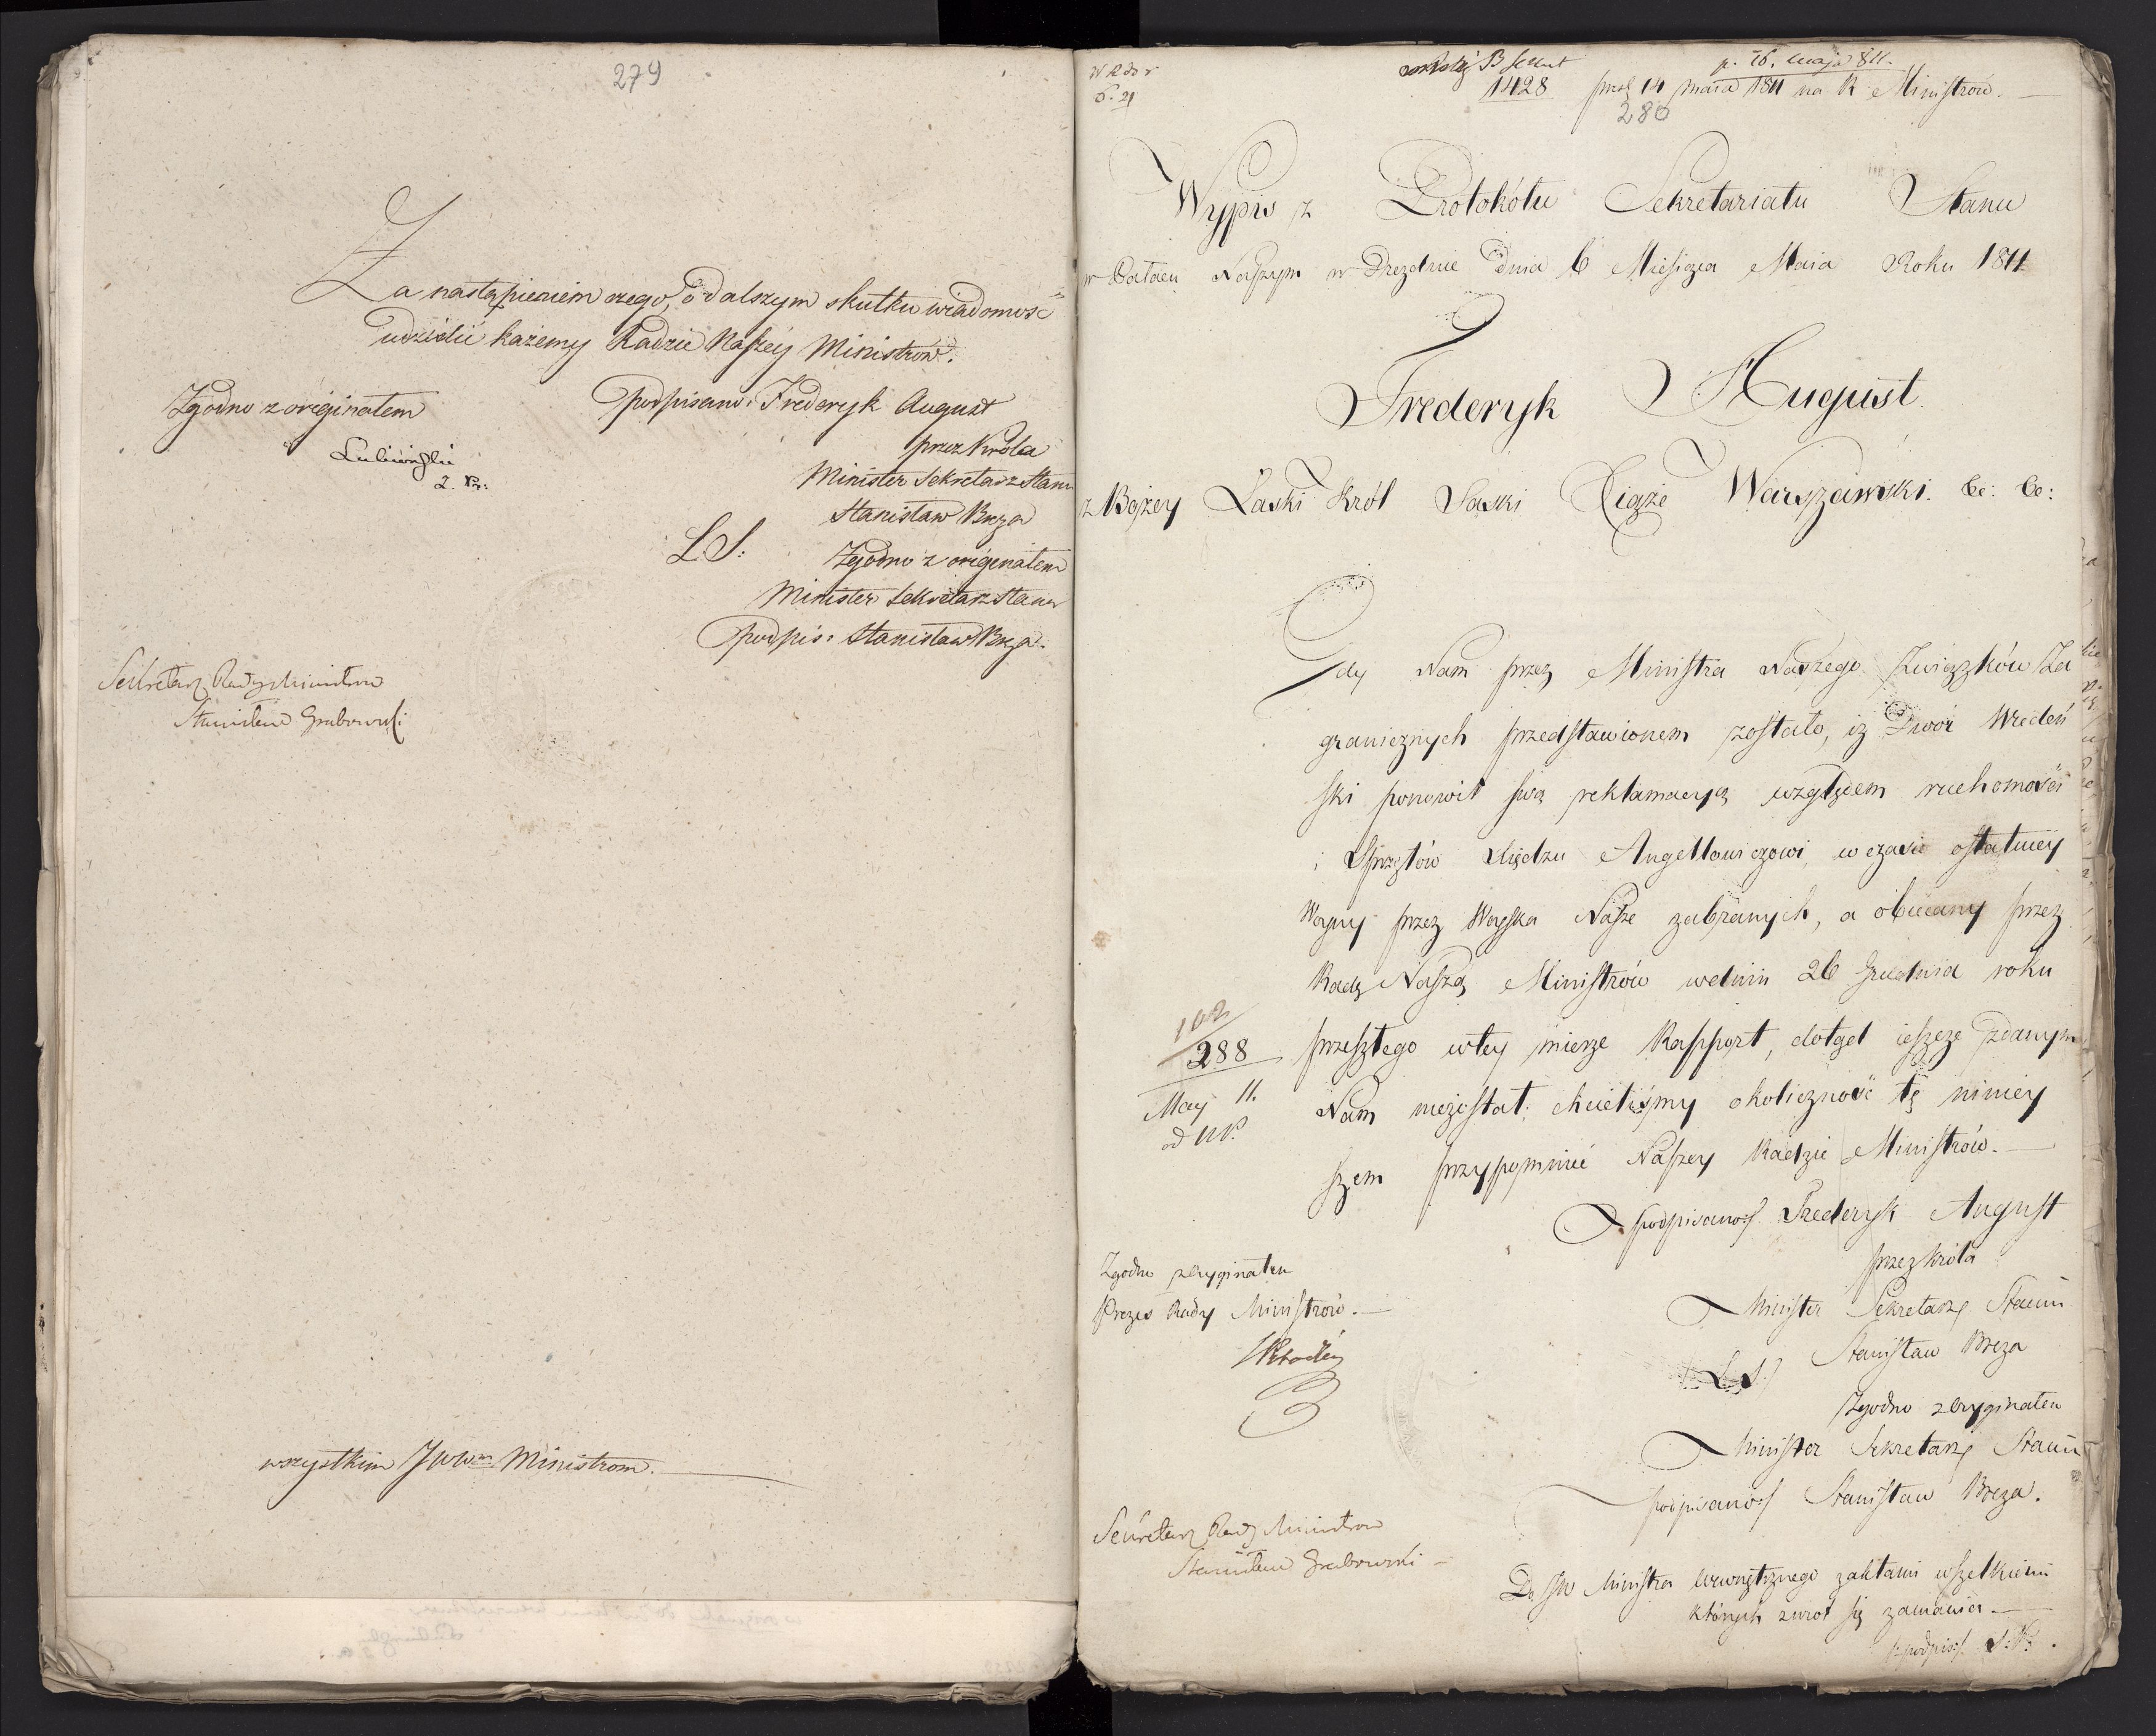 279
Za nastąpieniem czego, o dalszym skutku wiadomość
udzielić każemy Radzie Naszéy Ministrów.
Zgodno z originałem
podpisano: Frederyk August
przez Króla
Minister Sekretarz Stanu
Stanisław Breza
L S:
Zgodno z originałem
Minister Sekretarz Stanu
podpis: Stanisław Breza.
Sekretarz Rady Ministrów
Stanisław Grabowski
wszystkim JWWm Ministrom.
p. 16. maja 811.
1428 14 Maia 1811 na R Ministrów.
280
Wypis z Protokółu Sekretariatu Stanu
w Pałacu Naszym w Dreznie Dnia 6 Miesiąca Maia Roku 1811
Frederyk August
z Bożey Łaski Król Saski Xiąże Warszawski &c: &c:
Gdy Nam przez Ministra Naszego Związków Za
granicznych przedstawionem zostało, iż Dwór Wiedeń
ski ponowił swą reklamacyą względem ruchomości
i Sprzętów Xiędzu Angellowiczowi, w czasie ostatniey
Woyny przez Woyska Nasze zabranych, a obiecany przez
Radę Naszą Ministrów w dniu 26 Grudnia roku
przeszłego w tey mierze Rapport, dotąd ieszcze zdanym
Nam niezostał: chcieliśmy okoliczność tę niniey
szem przypomnieć Naszey Radzie Ministrów.
288
May 11.
podpisano Frederyk August
przez Króla
Minister Sekretarz Stanu
Stanisław Breza
L.S.
Zgodno z oryginałem
Minister Sekretarz Stanu
podpisano Stanisław Breza.
Zgodno z oryginałem
Prezes Rady Ministrów.
Sekretarz Rady Ministrów
Stanisław Grabowski
Do JW Ministra Wewnętrznego z aktami wszelkiemi
których zwrot się zamawia
podpis: S. P.